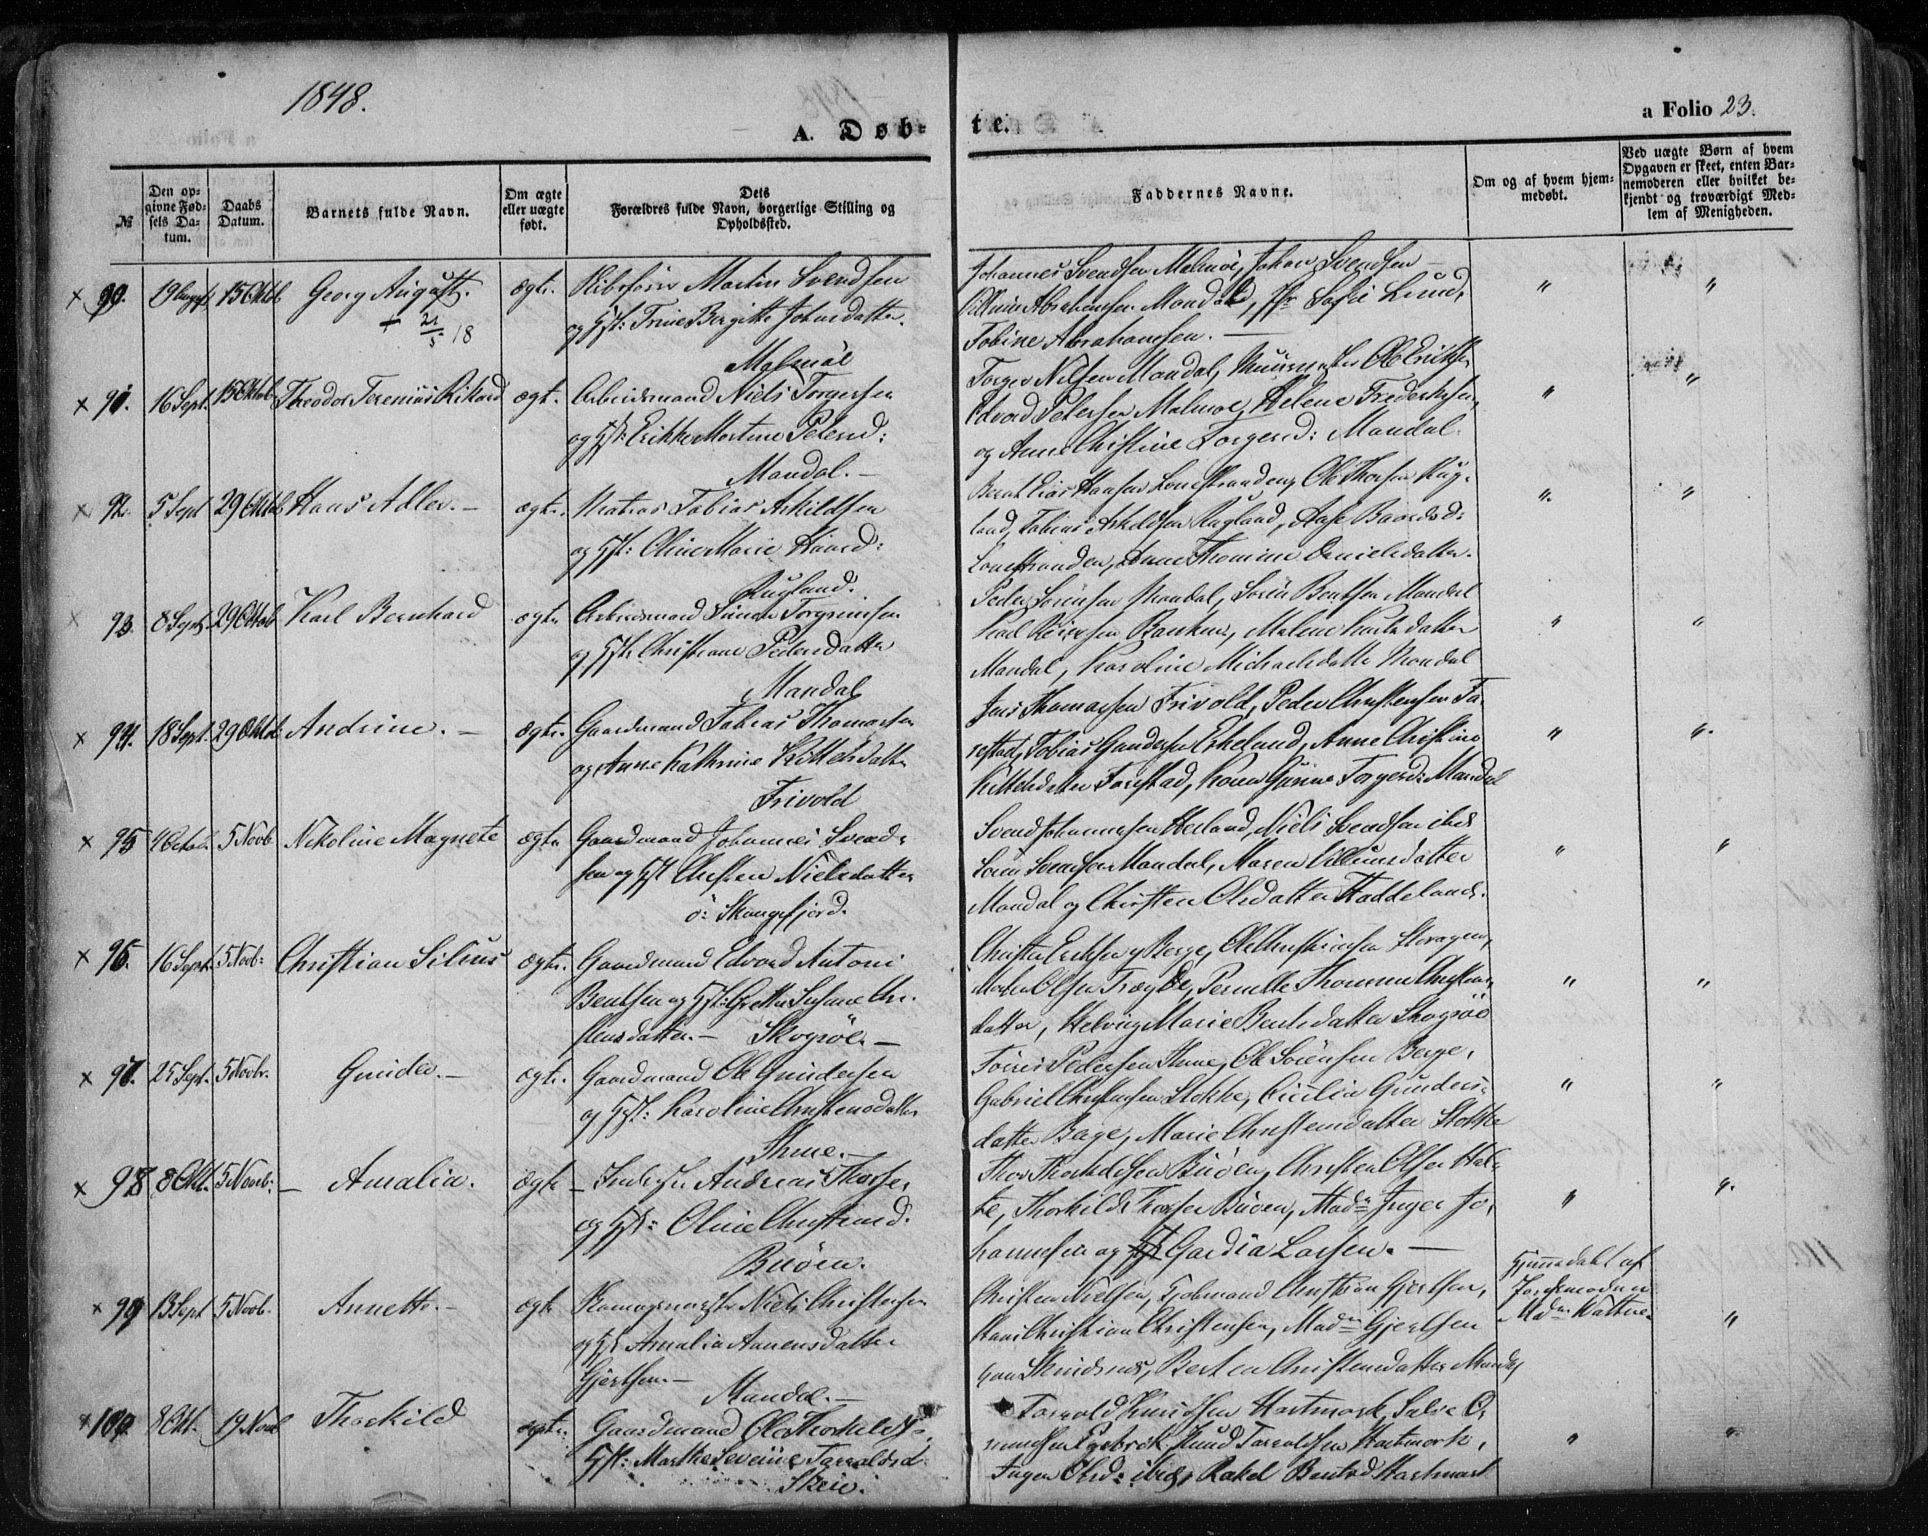 1848.
A. Døb-
te.
a Folio 23.
№
Den op-
givne Fød-
sels Da-
tum.
Daabs
Datum.
Barnets fulde Navn.
Om ægte
eller uægte
født.
Dets
Forældres fulde Navn, borgerlige Stilling og
Opholdssted.
Faddernes Navne.
Om og af hvem hjem-
medøbt.
Ved uægte Børn af hvem
Opgaven er skeet, enten Bar-
nemoderen eller hvilket be-
kjendt og troværdigt Med-
lem af Menigheden.
× 90. 19 August 15 Oktb Georg August. ægte. Martin Svendsen
+ 21/5 18
og Hst: Trine Bergitte Johnsdatter.
Malmöe
Johannes Svendsen Malmöe, Johan Svendsen
Abrahamsen Mandal, Jfr Sofie Lund,
Tobine Abrahamsen. " "
× 91. 16 Sept. 15 Oktob Theodor Terenius Rikard ægt. Arbeidsmand Niels Torgersen
og Hst: Erikke Martine Petersd:
Mandal.
Torger Nilsen Mandal, Muurmester Ole Eriksen
Edvard Petersen Malmöe, Helene Frederiksen,
og Anne Christine Torgersd: Mandal. " "
× 92. 5 Sept 29 Oktb Hans Adler. ægte. Matros Tobias Askildsen
og Hst: Oline Marie Haansd:
Rugland.
Bernt Elias Hansen Lonestranden, Ole Thorsen Rug-
land, Tobias Askildsen Rugland, Aase Baardsd:
Lonestranden, Anne Thomine Danielsdatter. " "
× 93. 8 Sept 29 Oktob Karl Bernhard ægte Arbeidsmand Simon Torgrimsen
og Hst: Christiane Pedersdatter
Mandal
Peder Sörensen Mandal, Sörin Bentsen Mandal
Karl Reiersen Banken, Malene Karlsdatter
Mandal, Karoline Michaelsdatter Mandal " "
× 94. 18 Sept. 29 Oktob Andrine. ægte. Gaardmand Tobias Thomassen
og Anne Kathrine Kittelsdatter
Frivold
Jens Thomassen Frivold, Peder Christensen Fa-
restad, Tobias Gundersen Eskeland, Anne Christine
Kittelsdatter Farestad, Karen Gurine Torgersd: Mandal " "
× 95 4 Octob. 5 Novb Nikoline Magnete ægte Gaardmand Johannes Svend-
sen og Hst Christen Nielsdatter
ö: Skougsfjord.
Svend Johannessen Herland, Niels Svendsen ibid
Sören Svensen Mandal, Maren Villumsdatter
Mandal og Christen Olsdatter Haddeland. " "
× 96. 16 Sept. 5 Novb: Christian Silius ægte. Gaardmand Edvard Antoni
Bentsen og Hst: Grethe Susane Chri-
stensdatter. Skogsöe.
Christen Eriksen Berge, Ole Christensen
Olsen Trægde, Pernille Thomine Christens-
datter, Helvig Marie Bentsdatter Skogsöe " "
× 97. 25 Sept. 5 Novbr. Gunder. ægte. Gaardmand Ole Gundersen
og Hst: Karoline Christensdatter
Ihme.
Torres Pedersen Ihme, Ole Sörensen Berge,
Gabriel Christensen Stokke, Cicilia Gunders-
datter Berge, Marie Christensdatter Stokke " "
× 98 8 Okt. 5 Novb: Amalia. ægte Inderst Andreas Thorsen
og Hst: Oline Christensd.
Buöen.
Thor Thorkildsen Buöen, Christen Olsen Hol-
te, Thorkild Thorsen Buöen, Mad: Inger Jo-
hannesen og Gardia Larsen. " "
× 99 13 Sept 5 Novb. Annette. ægte Niels Christensen
og Hst Amalia Anensdatter
Gjertsen.
Mandal.
Christen Nielsen, Christian Gjertsen,
Hans Christian Christensen, Mad: Gjertsen
Berten Christensdatter Mandal
Hjemmedøbt af
Jordemoderen
Mad: Wattne. "
× 100. 8 Okt. 19 Novb Thorkild ægte. Gaardmand Ole Thorkildsen
Hst: Marthe Severine Tarraldsd
Skeie.
Tarrald Knudsen Hartmark, Salve O-
mundsen Egebrok, Knud Tarraldsen Hartmark,
Inger Olsd: ibid, Rakel Bentsd Hartmark " "